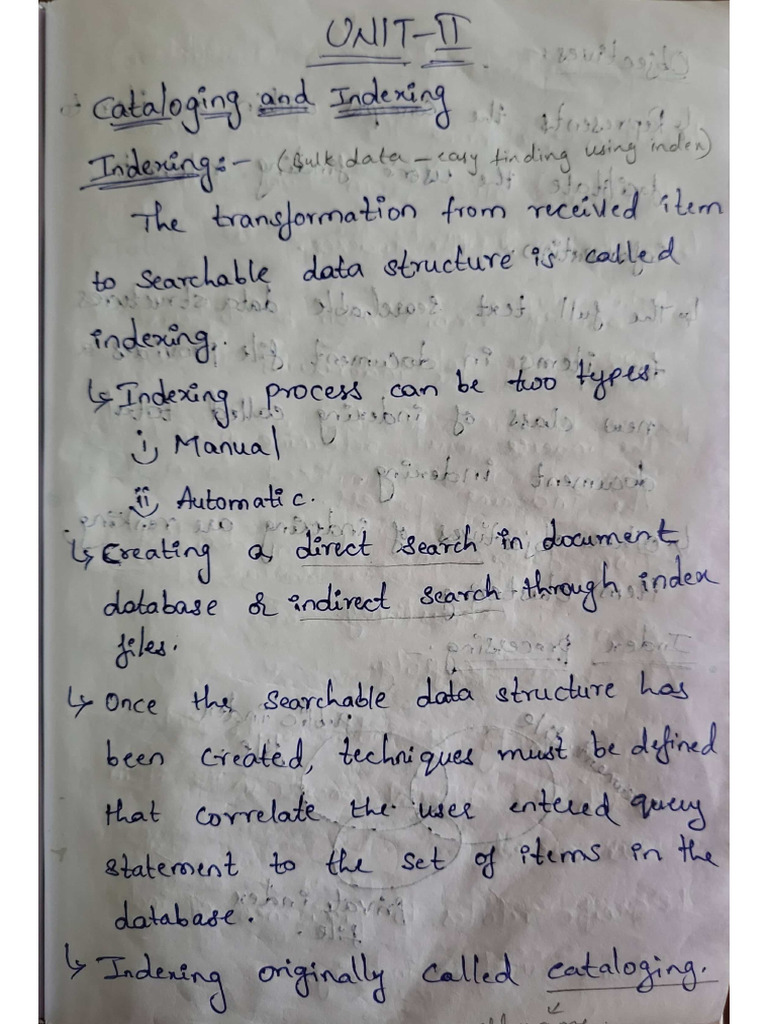 UNIT-II
Cataloging and Indexing
Indexing:- (Bulk data – easy finding using index)
The transformation from received item
to searchable data structure is called
indexing.
↳ Indexing process can be two types.
i) Manual
ii) Automatic.
↳ Creating a direct search in document
database & indirect search through index
files.
↳ Once the searchable data structure has
been created, techniques must be defined
that correlate the user entered query
statement to the set of items in the
database.
↳ Indexing originally called cataloging.